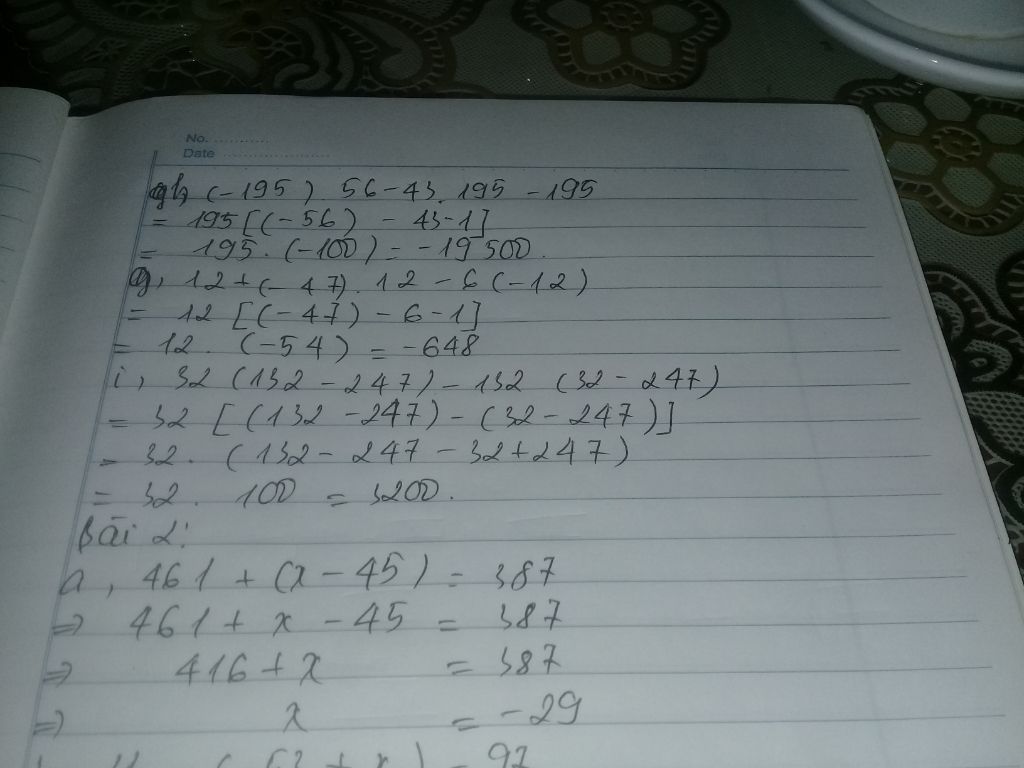 No. ............
Date ........................
h, (-195) 56-43.195 -195
= 195[(-56) - 43-1]
= 195. (-100) = -19500.
g, 12+(-47). 12 - 6(-12)
= 12 [(-47) - 6-1]
= 12. (-54) = -648
i, 32 (132-247) - 132 (32-247)
= 32 [(132-247) - (32-247)]
= 32. (132-247-32+247)
= 32. 100 = 3200.
Bài 2:
a, 461 + (x-45) = 387
=> 461 + x - 45 = 387
=> 416 + x = 387
=> x = -29